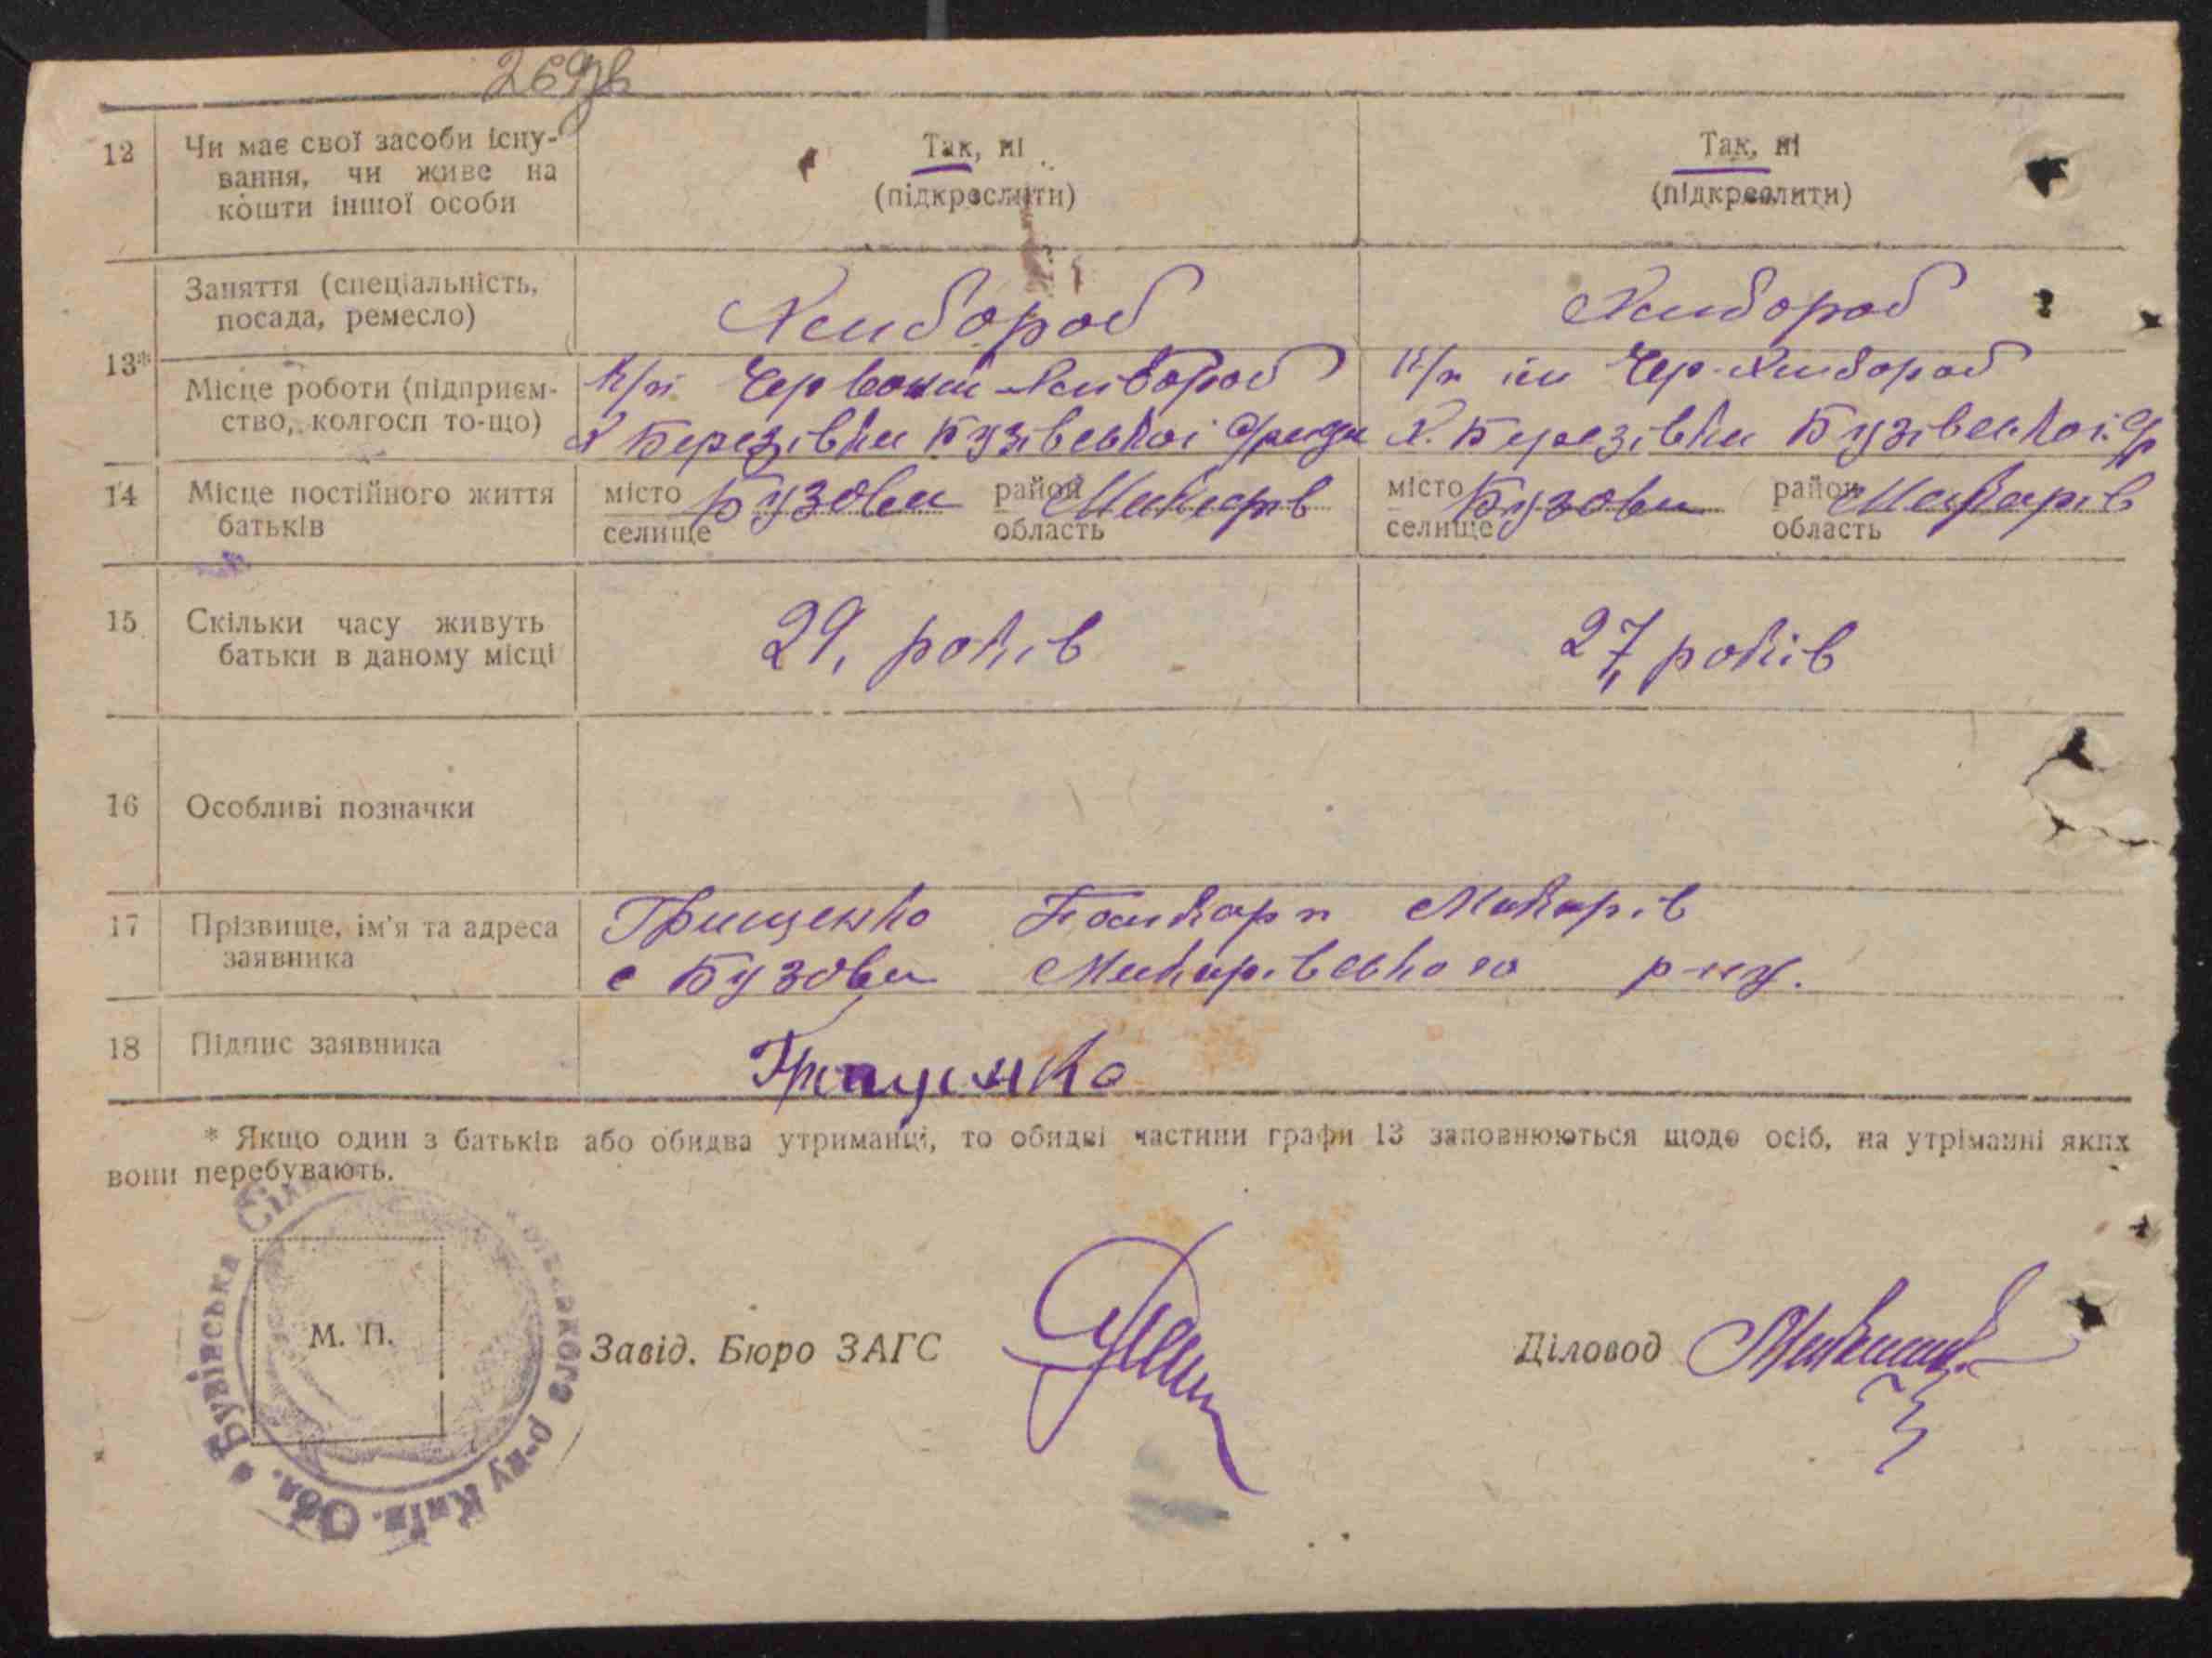 269зв
12 Чи має свої засоби існу-
вання, чи живе на
кошти іншої особи
Так, ні
(підкреслити)
Так, ні
(підкреслити)
13*
Заняття (спеціальність,
посада, ремесло)
Хлибороб
Хлибороб
Місце роботи (підприєм-
ство, колгосп то-що)
Червоний Хлибороб
Х Березівки Бузівської с/ради
К/г ім Чер. Хлибороб
Х. Березівки Бузівської с/р
14 Місце постійного життя
батьків
місто Бузова район Макарів
селище область
місто Бузова район Макарів
селище область
15 Скільки часу живуть
батьки в даному місці
29, років
27, років
16 Особливі позначки
17 Прізвище, ім'я та адреса
заявника
Грищенко Полікарп Макарів
с Бузова Макарівського р-ну.
18 Підпис заявника
Грищенко
* Якщо один з батьків або обидва утриманці, то обидві частини графи 13 заповнюються щодо осіб, на утріманні яких
вони перебувають.
Бузівська Сіл
р-ну Київ. Обл.
М. П.
Завід. Бюро ЗАГС
Діловод